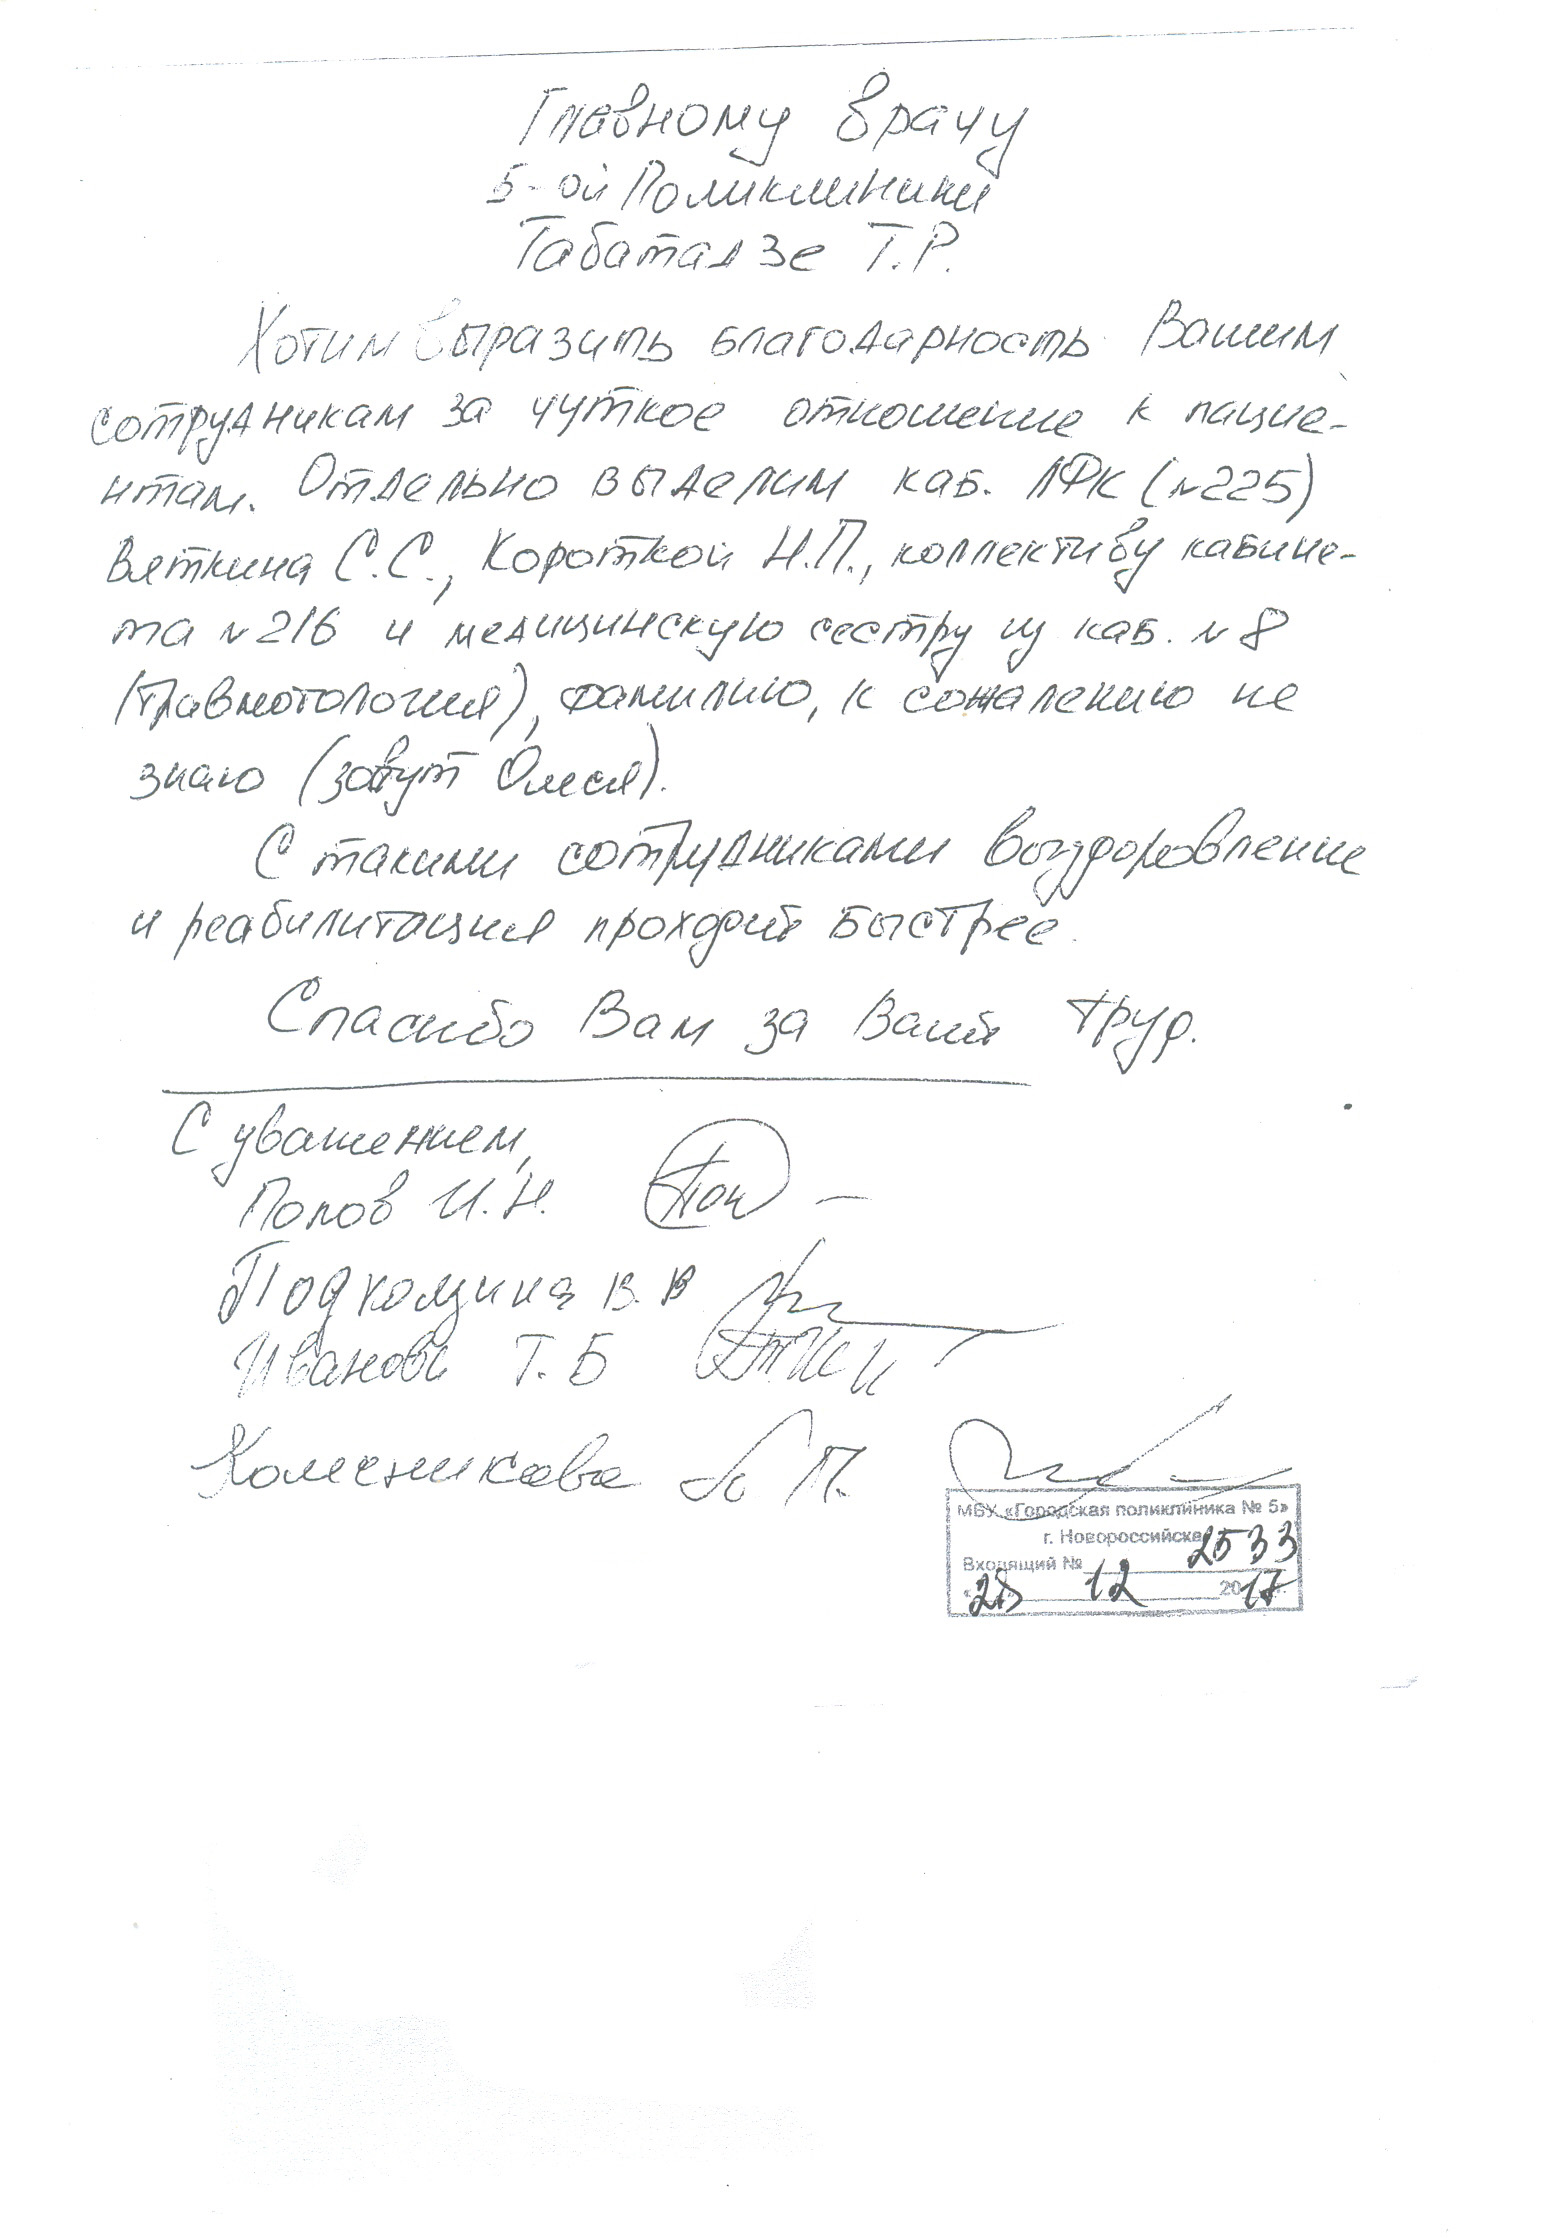 Главному врачу
5-ой Поликлиники
Табатадзе Т.Р.
Хотим выразить благодарность Вашим
сотрудникам за чуткое отношение к пацие-
нтам. Отдельно выделим каб. ЛФК (№225)
Вяткина С.С., Короткой Н.П., коллективу кабине-
та №216 и медицинскую сестру из каб. №8
(травмотология), фамилию, к сожалению не
знаю (зовут Олеся).
С такими сотрудниками выздоровление
и реабилитация проходит быстрее.
Спасибо Вам за Ваш труд.
С уважением,
Попов И.Н.
В.В
Иванова Т.Б
Колесникова Л П.
МБУ «Городская поликлиника № 5»
г. Новороссийска
Входящий № 2533
«28» 12 2017г.